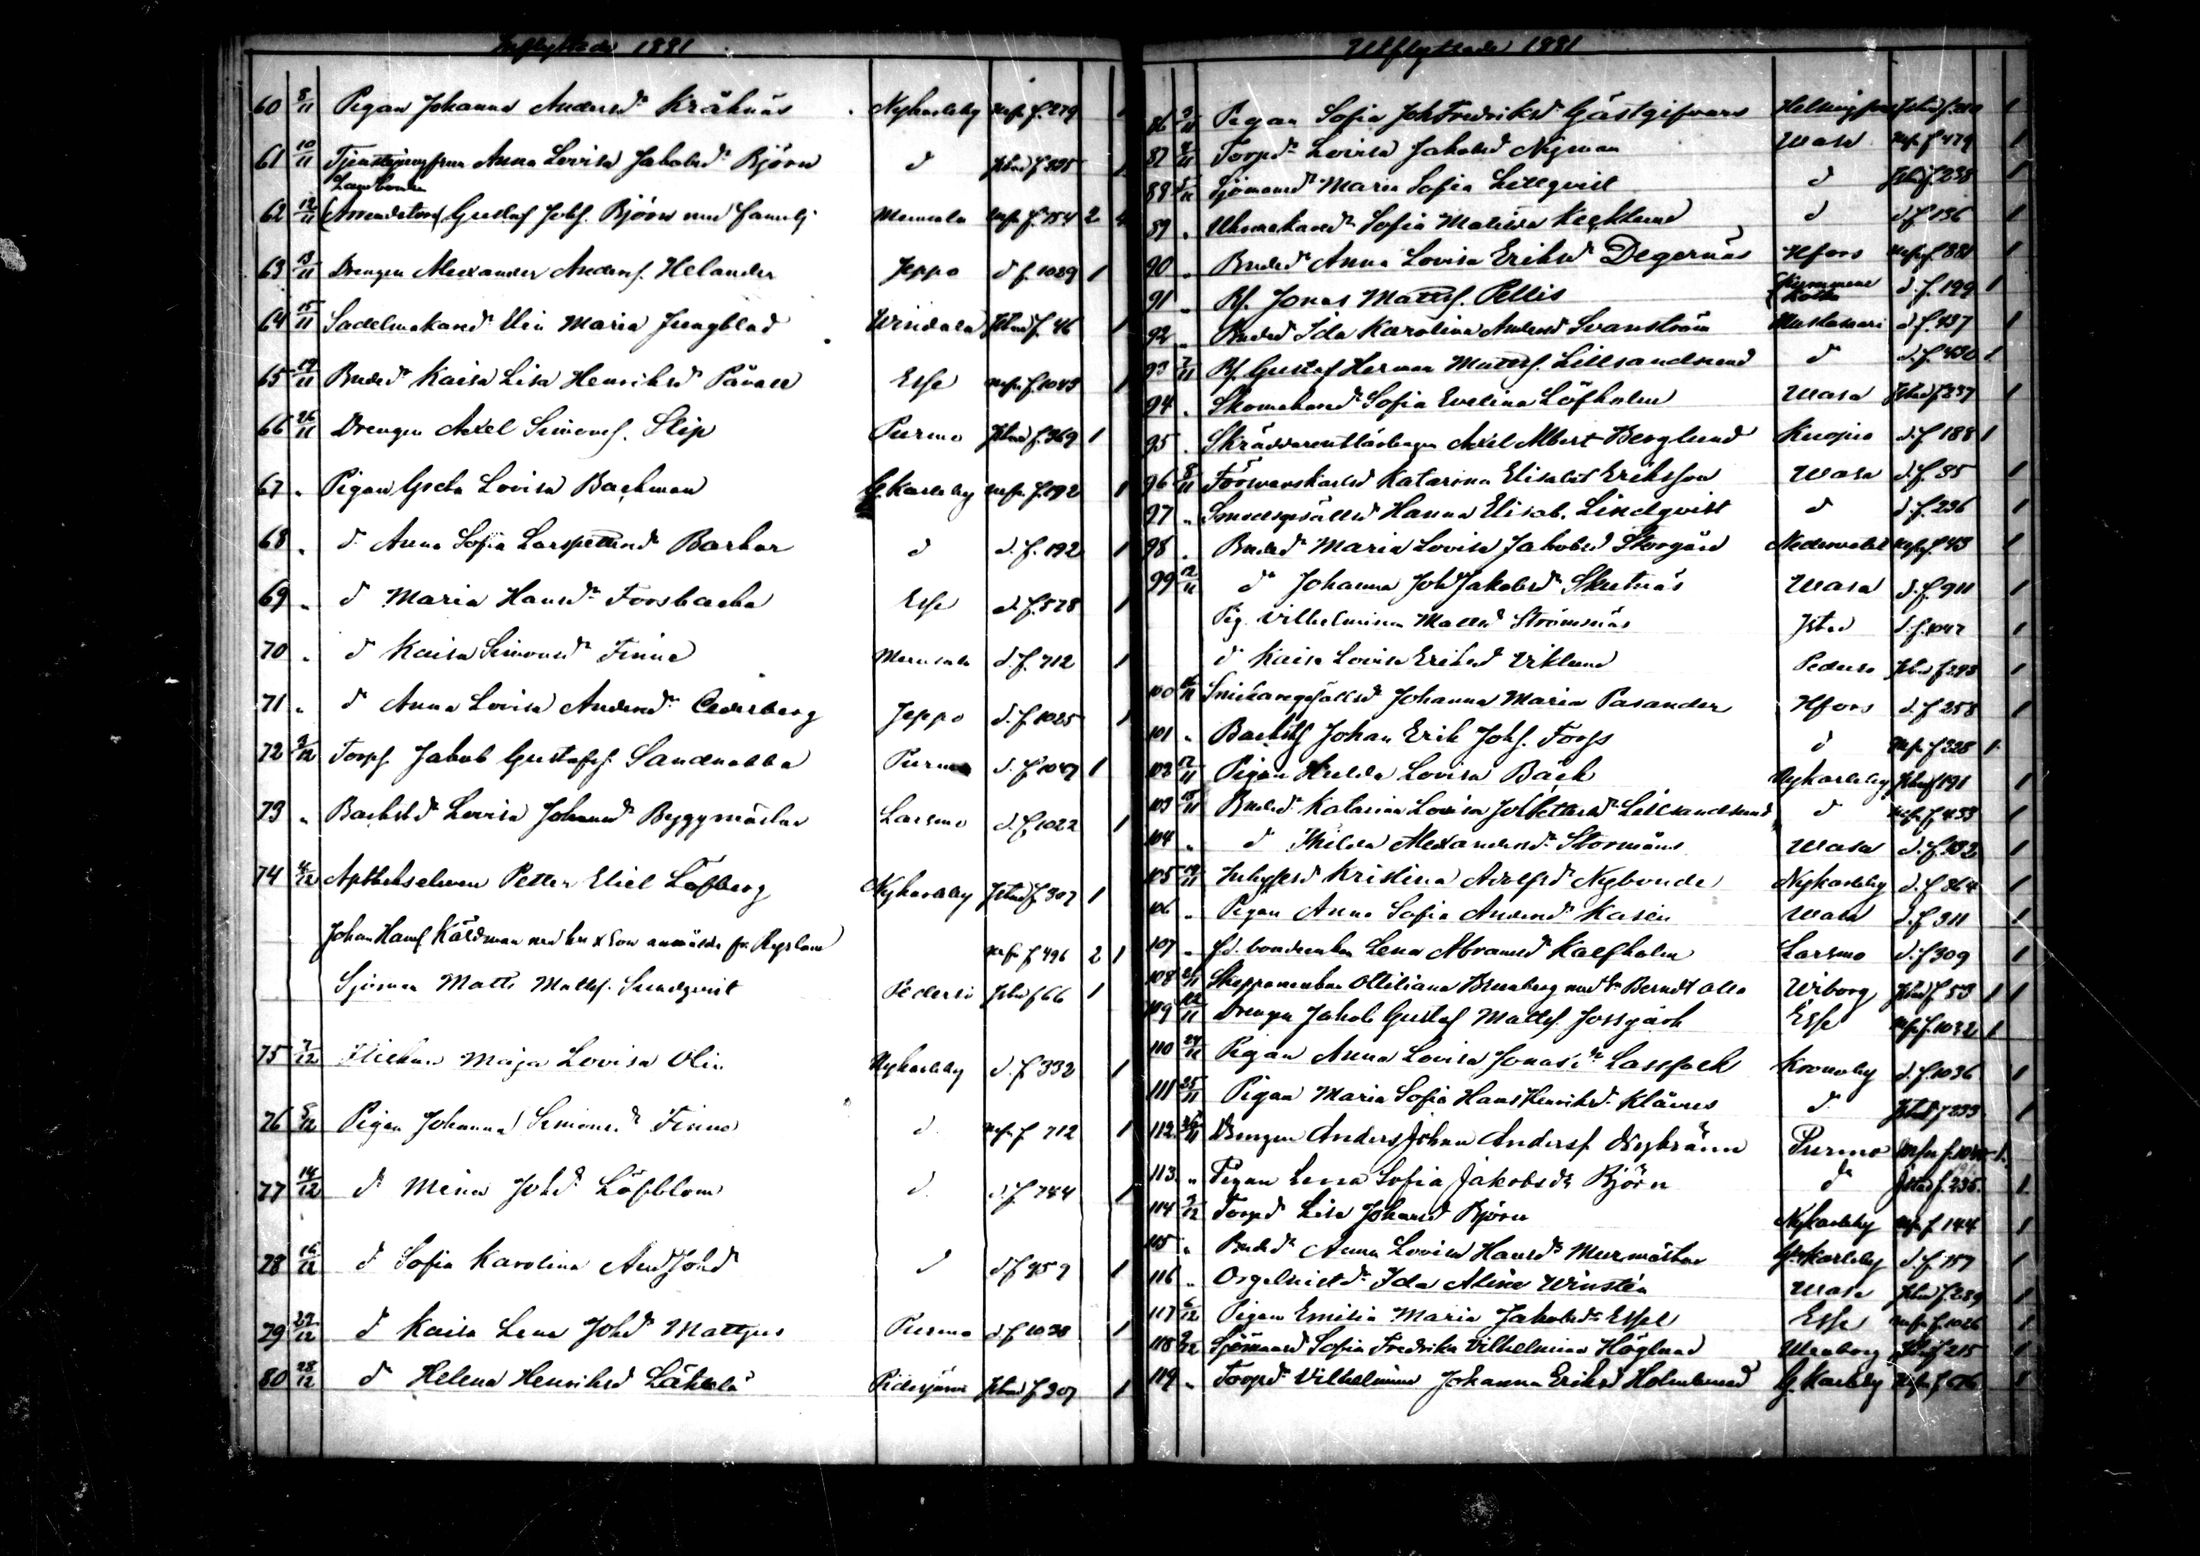 Inflyttade 1881
60 8/11 Pigan Johanna Andersdr Kråknäs Nykarleby nyb. f. 279 1
61 10/11 Tjenstejungfrun Anna Lovisa Jakobsdr Björn d Jstad f. 325 1
Landbonden
62 12/11 (Arrendatorn) Gustaf Johs. Björn med familj Munsala f. 154 2 4
63 13/11 Drengen Alexander Anders. Helander Jeppo d f. 1029 1
64 15/11 Sadelmakaredr Elin Maria Jungblad Windala Jstad f. 46 1
65 19/11 Bndedr Kaisa Lisa Henriksdr Påvall Esse f. 1043 1
66 26/11 Drengen Axel Simons. Slip Purmo Jstad f. 369 1
67 " Pigan Greta Lovisa Backman G. Karleby f. 192 1
68 " d Anna Sofia Larspettersdr Barkar d d. f. 192 1
69 " d Maria Hansdr Forsbacka Esse d. f. 578 1
70 " d Kaisa Simonsdr Finne Munsala d. f. 712 1
71 " d Anna Lovisa Andersdr Cederberg Jeppo d. f. 1025 1
72 2/12 Torps. Jakob Gustafs. Sandnabba Purmo d. f. 1047 1
73 " Backstdr Lovisa Johansdr Byggmästar Larsmo d. f. 1022 1
74 4/12 Apotekseleven Petter Eliel Löfberg Nykarleby Jstad f. 307 1
Johan Hans. Källman med hu x son anmälde fr. Ryssland f. 496 2 1
Sjöman Matts Matts. Sundqvist Pedersö Jstad f. 66 1
75 7/12 Flickan Maja Lovisa Olin Nykarleby d. f. 332 1
76 8/12 Pigan Johanna Simonsdr Finne d. f. 712 1
77 14/12 d Mina Johsdr Löfblom d. d. f. 744 1
78 16/12 d Sofia Karolina And Johsdr d d. f. 959 1
79 22/12 d Kaisa Lena Johsdr Mattjus Purmo d. f. 1038 1
80 28/12 d Helena Henriksdr Läkkälä Pidisjärvi Jstad f. 307 1
Utflyttade 1881
86 2/11 Pigan Sofia Joh Fredriksdr Gästgifvars Helsingfors Jstad f. 1
87 3/11 Torpdr Lovisa Jakobsdr Nyman Wasa f. 479 1
88 5/11 Sjömansdr Maria Sofia Lillqvist d Jstad f. 238 1
89 " Urmakaredr Sofia Matilda Kecklund d d. f. 136 1
90 " Bndedr Anna Lovisa Eriksdr Degernäs Hfors f. 881 1
91 " Bs. Jonas Matts. Pellis Kymmene d. f. 199 1
92 " Bndedr Ida Karolina Andersdr Svanström Mustasaari d. f. 437 1
93 7/11 Bs. Gustaf Herman Matts. Lillsandsund d d. f. 430 1
94 " Skomakaredr Sofia Evelina Löfholm Wasa Jstad f. 237 1
95 " Skräddareutlärlingen Axel Albert Berglund Kuopio d. f. 188 1
96 8/11 Försvarskarlsdr Katarina Elisabet Eriksson Wasa d. f. 85 1
97 " Smedsgesällsdr Hanna Elisab. Lindqvist d d. f. 236 1
98 " Bndedr Maria Lovisa Jakobsdr Storgård Nedervetil f. 43 1
99 12/11 d Johanna Joh Jakobsdr Skutnäs Wasa d. f. 911 1
Pig. Vilhelmina Mattsdr Strömsnäs Jstad d. f. 1047 1
d Kaisa Lovisa Eriksdr Viklund Pedersö Jstad f. 293 1
100 16/11 Snickaregesällsdr Johanna Maria Pasander Hfors d. f. 258 1
101 " Backsts. Johan Erik Johs. Forss d f. 328 1
102 17/11 Pigan Hulda Lovisa Bäck Nykarleby Jstad f. 191 1
103 18/11 Bndedr Katarina Lovisa Joh Pettersdr Lillsandsund d f. 433 1
104 " d Thilda Alexandersdr Stormåns Wasa d. f. 132 1
105 19/11 Inhysesdr Kristina Adolfsdr Nybonde Nykarleby d. f. 864 1
106 " Pigan Anna Sofia Andersdr Kasén Wasa d. f. 311 1
107 " f.d. bondeenkan Lena Abramsdr Kalfholm Larsmo d. f. 309 1
108 21/11 Skeppareenkan Ottiliana Brunberg med s. Berndt Otto Wiborg Jstad f. 53 1 1
109 22/11 Drengen Jakob Gustaf Matts. Jossgärd Esse f. 1032 1
110 24/11 Pigan Anna Lovisa Jonas:dr Lassfolk Kronoby d. f. 1036 1
111 25/11 Pigan Maria Sofia Hans Henriksdr Klävus d. Jstad f. 233 1
112 26/11 Drengen Anders Johan Anders. Nybränn Purmo f. 1
113 " Pigan Lena Sofia Jakobsdr Björn d Jstad f. 235 1
114 2/12 Torpdr Lisa Johansdr Björn Nykarleby f. 144 1
115 " Bndedr Anna Lovisa Hansdr Murmästar G. Karleby d. f. 757 1
116 " Orgelnistdr Ida Aline Winstén Wasa Jstad f. 289 1
117 6/12 Pigan Emilia Maria Jakobsdr Essel Esse f. 1026 1
118 9/12 Sjömansdr Sofia Fredrika Vilhelmina Höglund Uleåborg Jstad f. 215 1
119 " Torpdr Vilhelmina Johanna Eriksdr Holmlund G. Karleby f. 676 1